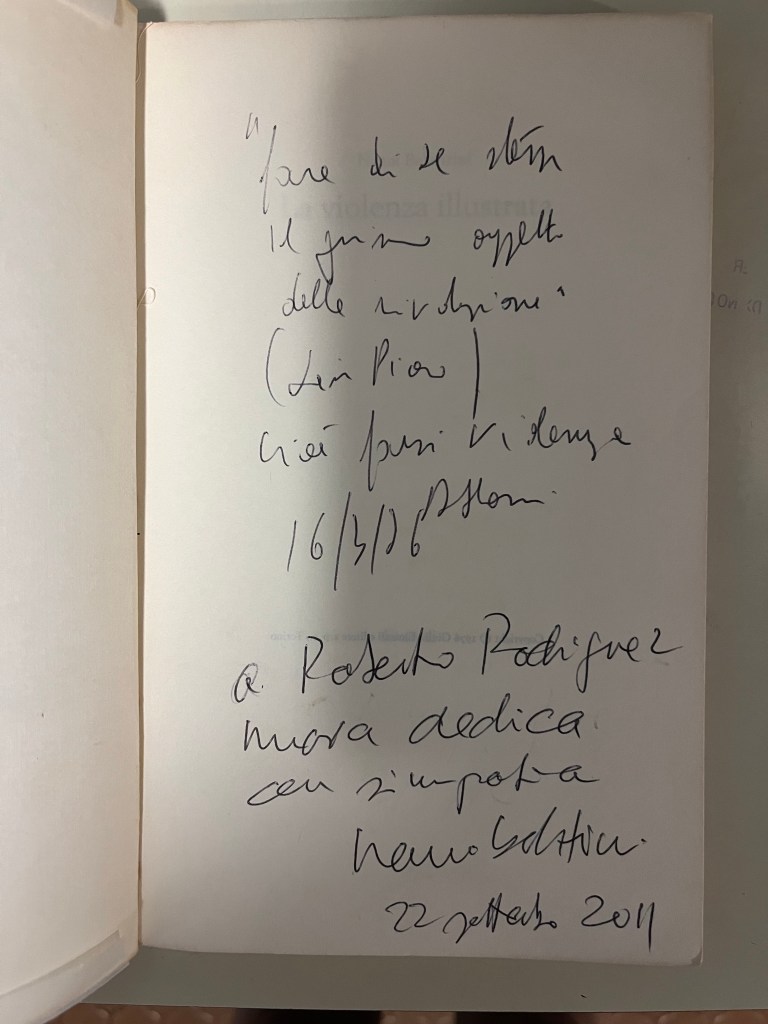 "fare di se stessi
il primo oggetto
della rivoluzione"
(Lin Piao)
cioè farsi violenza
16/3/76
a Roberto Rodriguez
nuova dedica
con simpatia
Nanni Balestrini
22 settembre 2011
La violenza illustrata